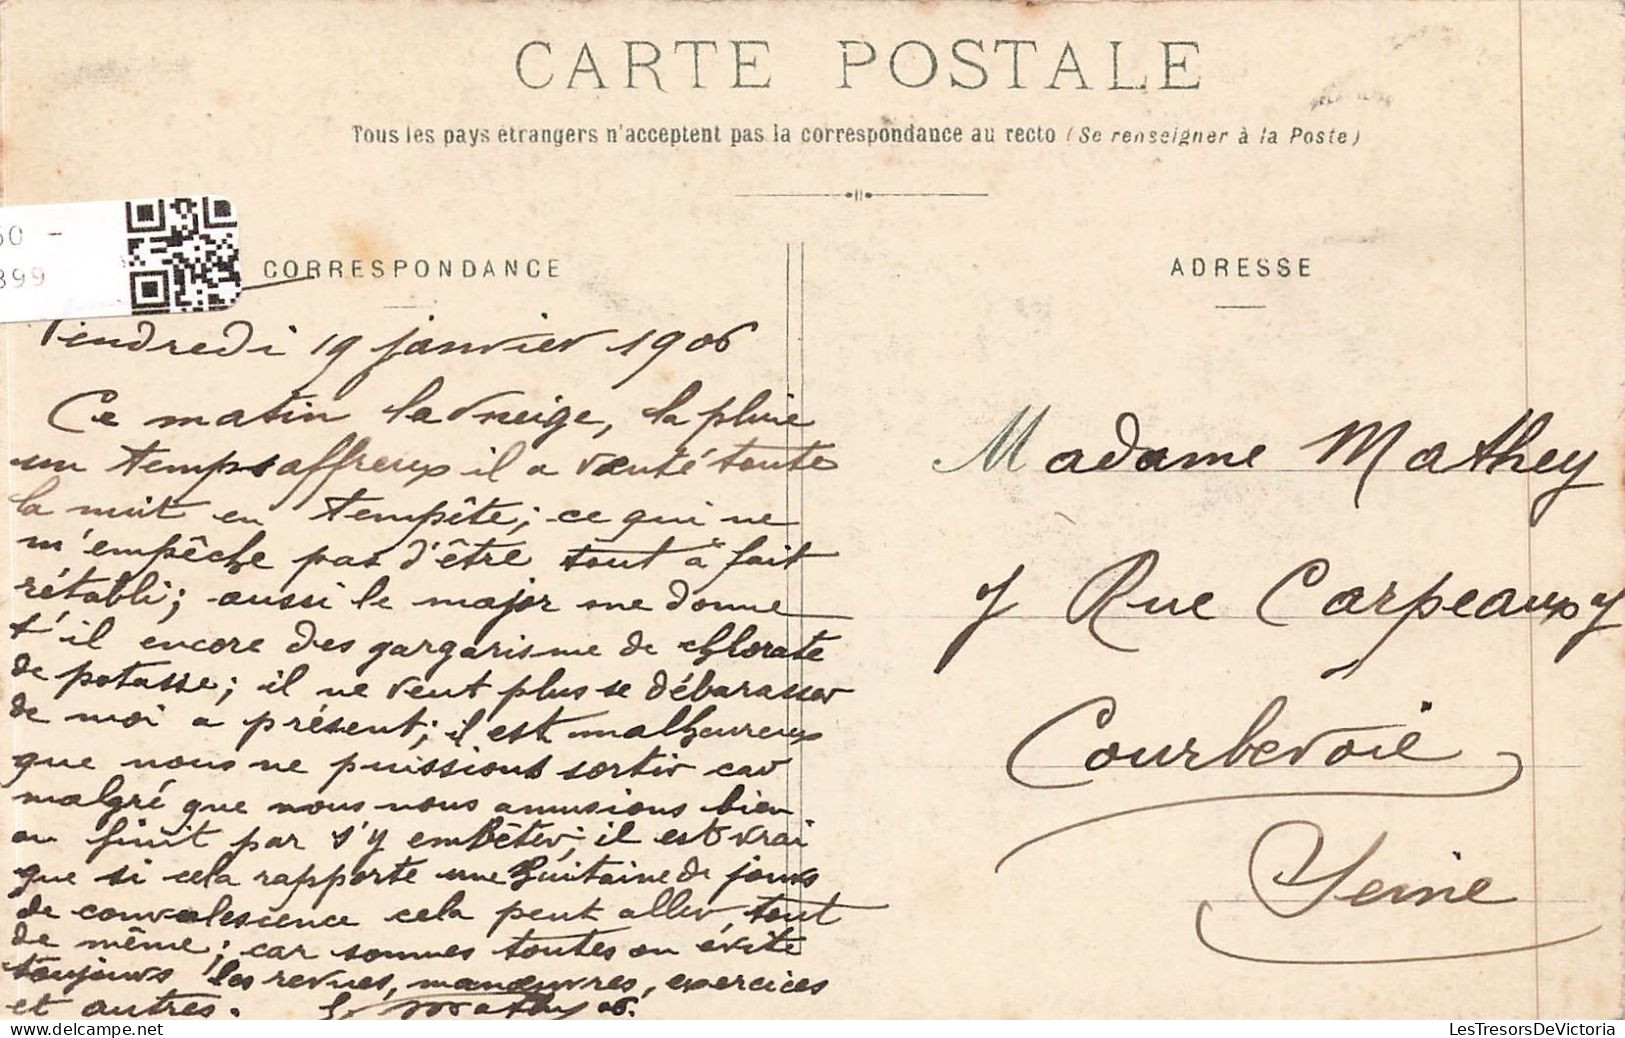 CARTE POSTALE
Tous les pays étrangers n'acceptent pas la correspondance au recto (Se renseigner à la Poste)
60 -
899
CORRESPONDANCE
Vendredi 19 janvier 1906
Ce matin la neige, la pluie
un temps affreux il a venté toute
la nuit en tempête; ce qui ne
m'empêche pas d'être tout à fait
rétabli; aussi le major me donne
t'il encore des gargarisme de chlorate
de potasse; il ne veut plus se débarasser
de moi a présent; il est malheureux
que nous ne puissions sortir car
malgré que nous nous amusions bien
on finit par s'y embêter; il est vrai
que si cela rapporte une huitaine de jours
de convalescence cela peut aller tout
de même; car sommes toutes on évite
toujours les revues, manœuvres, exercices
et autres. Mathey
ADRESSE
Madame Mathey
7 Rue Carpeaux 7
Courbevoie
Seine
LesTresorsDeVictoria